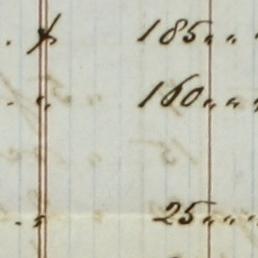 . $ 185 " " "
. " 160 " " "
. " 25 " " "